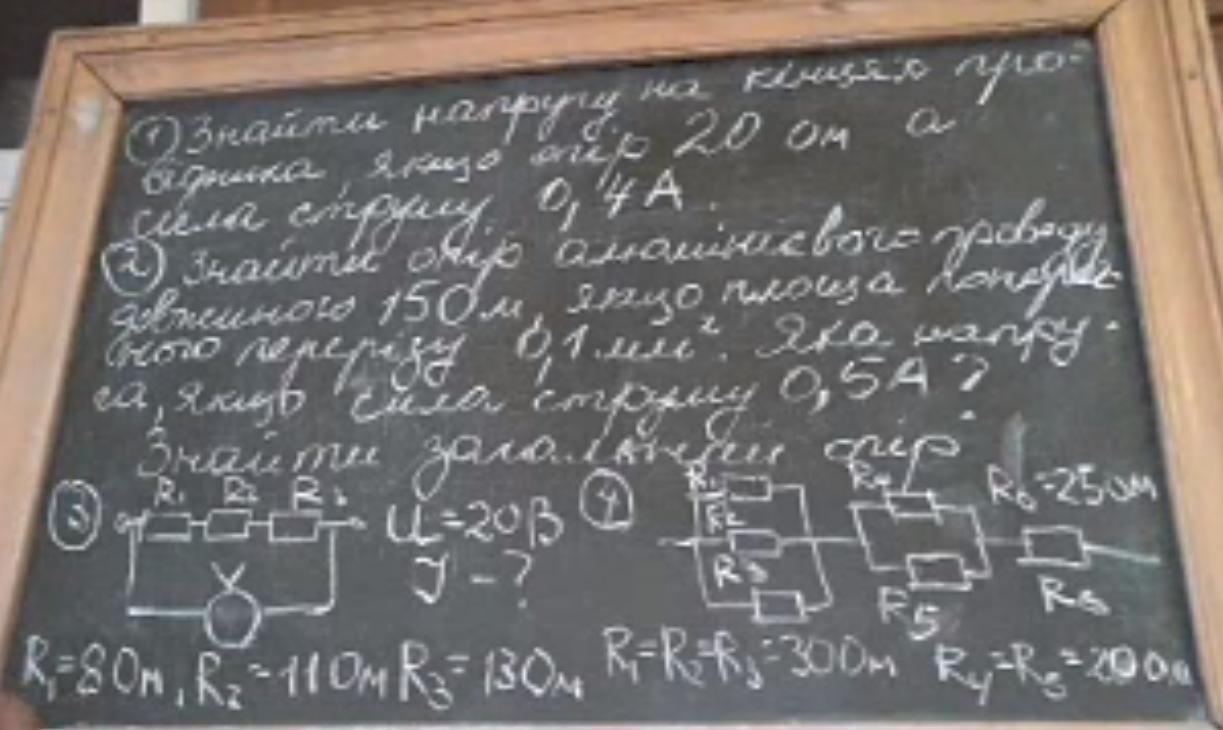 ① Знайти напругу на кінцях про-
відника, якщо опір 20 Ом а
сила струму 0,4 А.
② Знайти опір алюмінієвого проводу
довжиною 150 м, якщо площа попереч-
ного перерізу 0,1 мм². Яка напру-
га, якщо сила струму 0,5А?
Знайти загальний опір
③ R₁ R₂ R₃ U=20В ④ R₁ R₄ R₆=250м
R₂
V I-? R₃ R₅ R₆
R₁=80м, R₂=110м R₃=130м R₁=R₂=R₃=300м R₄=R₅=200м